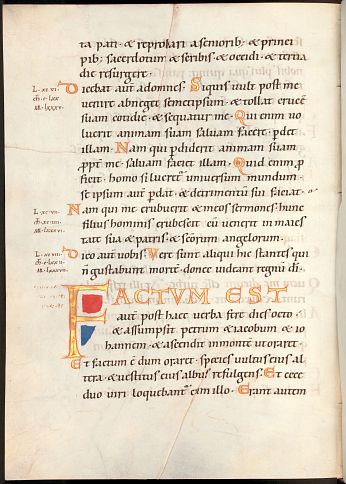 ta pati · & reprobari a seniorib; & princi
pib; sacerdotum & scribis · & occidi · & tertia
die resurgere ·
Dicebat aut̄ ad omnes · Siquis vult post me
uenire abneget semetipsum · & tollat crucē
suam cotidie · & sequatur me · Qui enim vo
luerit animam suam saluam facere · pdet
illam · Nam qui pdiderit animam suam
ppt̄ me · saluam faciet illam · Quid enim p
ficit · homo si lucret̄ uniuersum mundum ·
se ipsum aut̄ pdat · & detrimentū sui faciat ·
Nam qui me erubuerit · & meos sermones · hunc
filius hominis erubescet cū uenerit in maies
tate sua & patris · & sc̄orum angelorum ·
Dico aut̄ uobis · Vere sunt aliqui hic stantes qui
n̄ gustabunt mortē · donec uideant regnū dī ·
FACTVM EST
aut̄ post haec uerba fere dies octo ·
& assumpsit petrum & iacobum & io
hannem · & ascendit in montē ut oraret ·
Et factum ē dum oraret · species uultus eius al
tera · & uestitus eius albus refulgens · Et ecce
duo uiri loquebant̄ cum illo · Erant autem